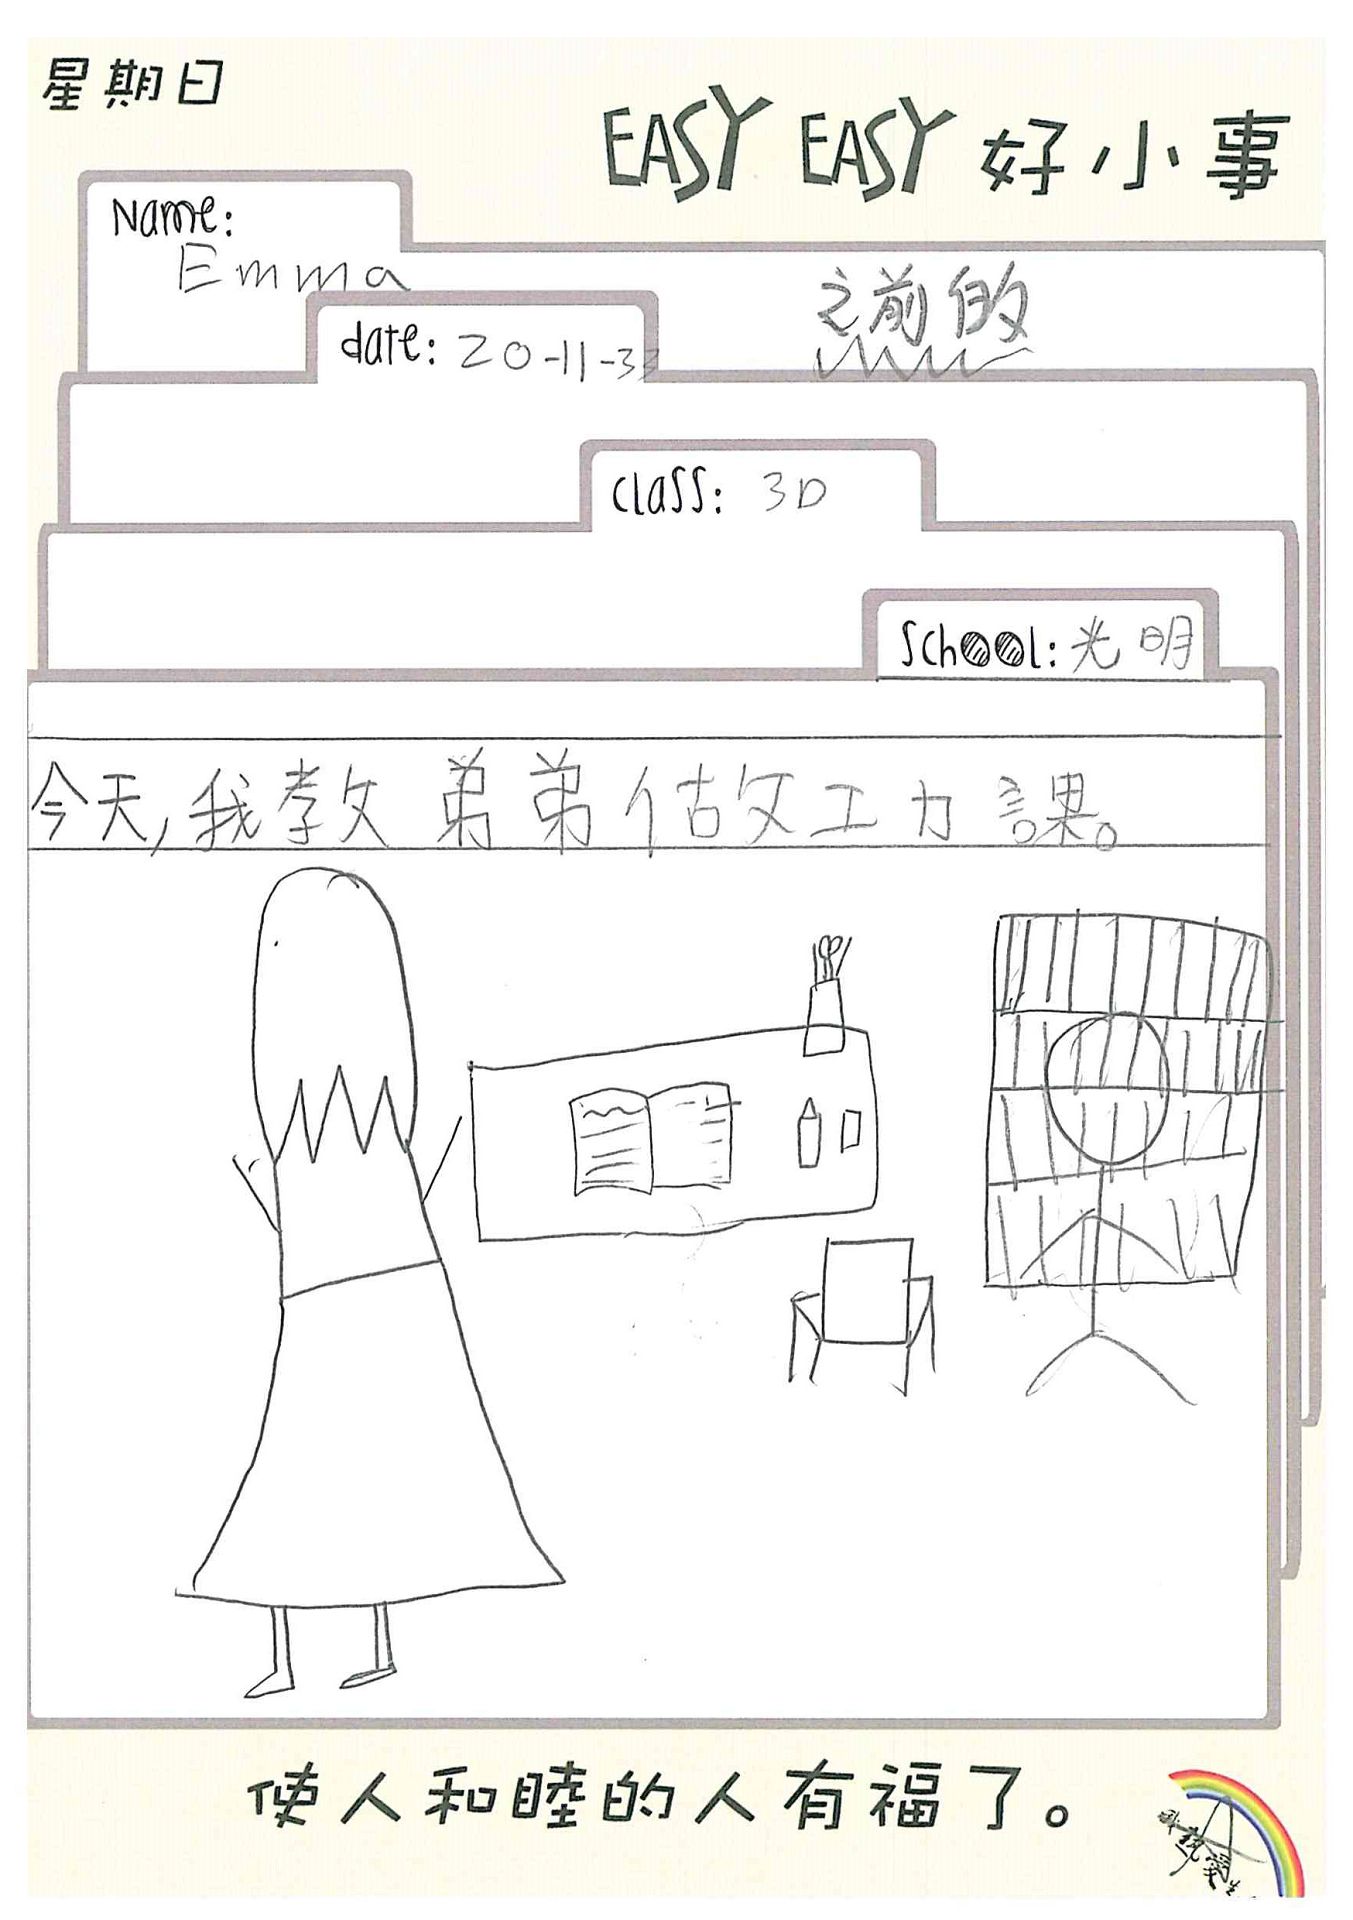 星期日
EASY EASY 好小事
Name:
Emma
之前的
date: 20-11-33
class: 3D
School: 光明
今天,我教弟弟做工力課。
使人和睦的人有福了。